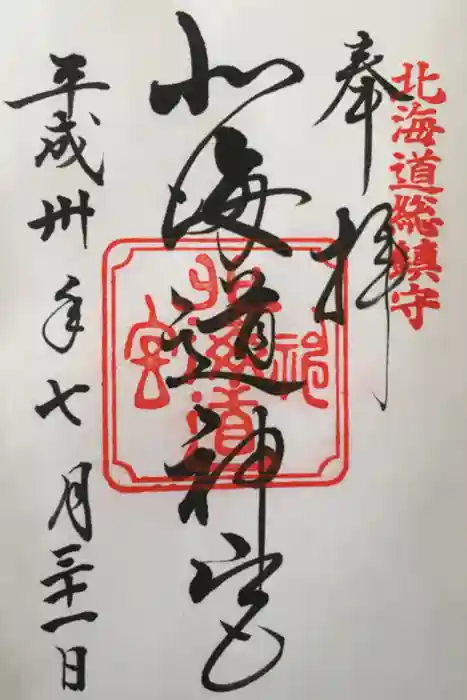 北海道総鎮守
奉拝
北海道神宮
北海道神宮
平成卅年七月三十一日